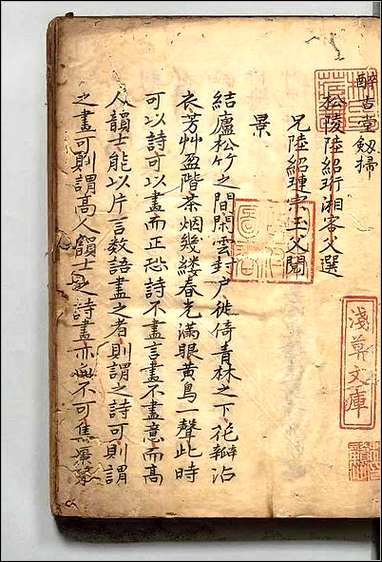 醉古堂劔掃
松陵陸紹珩湘客父選
兄陸紹璉宗玉父閱
景
結廬松竹之間閑雲封户徙倚青林之下花瓣沾
衣芳艸盈階茶烟幾縷春光滿眼黄鳥一聲此時
可以詩可以畫而正恐詩不盡言畫不盡意而高
人韻士能以片言数語盡之者則謂之詩可則謂
之畫可則謂高人韻士之詩畫亦無不可集景第
淺草文庫